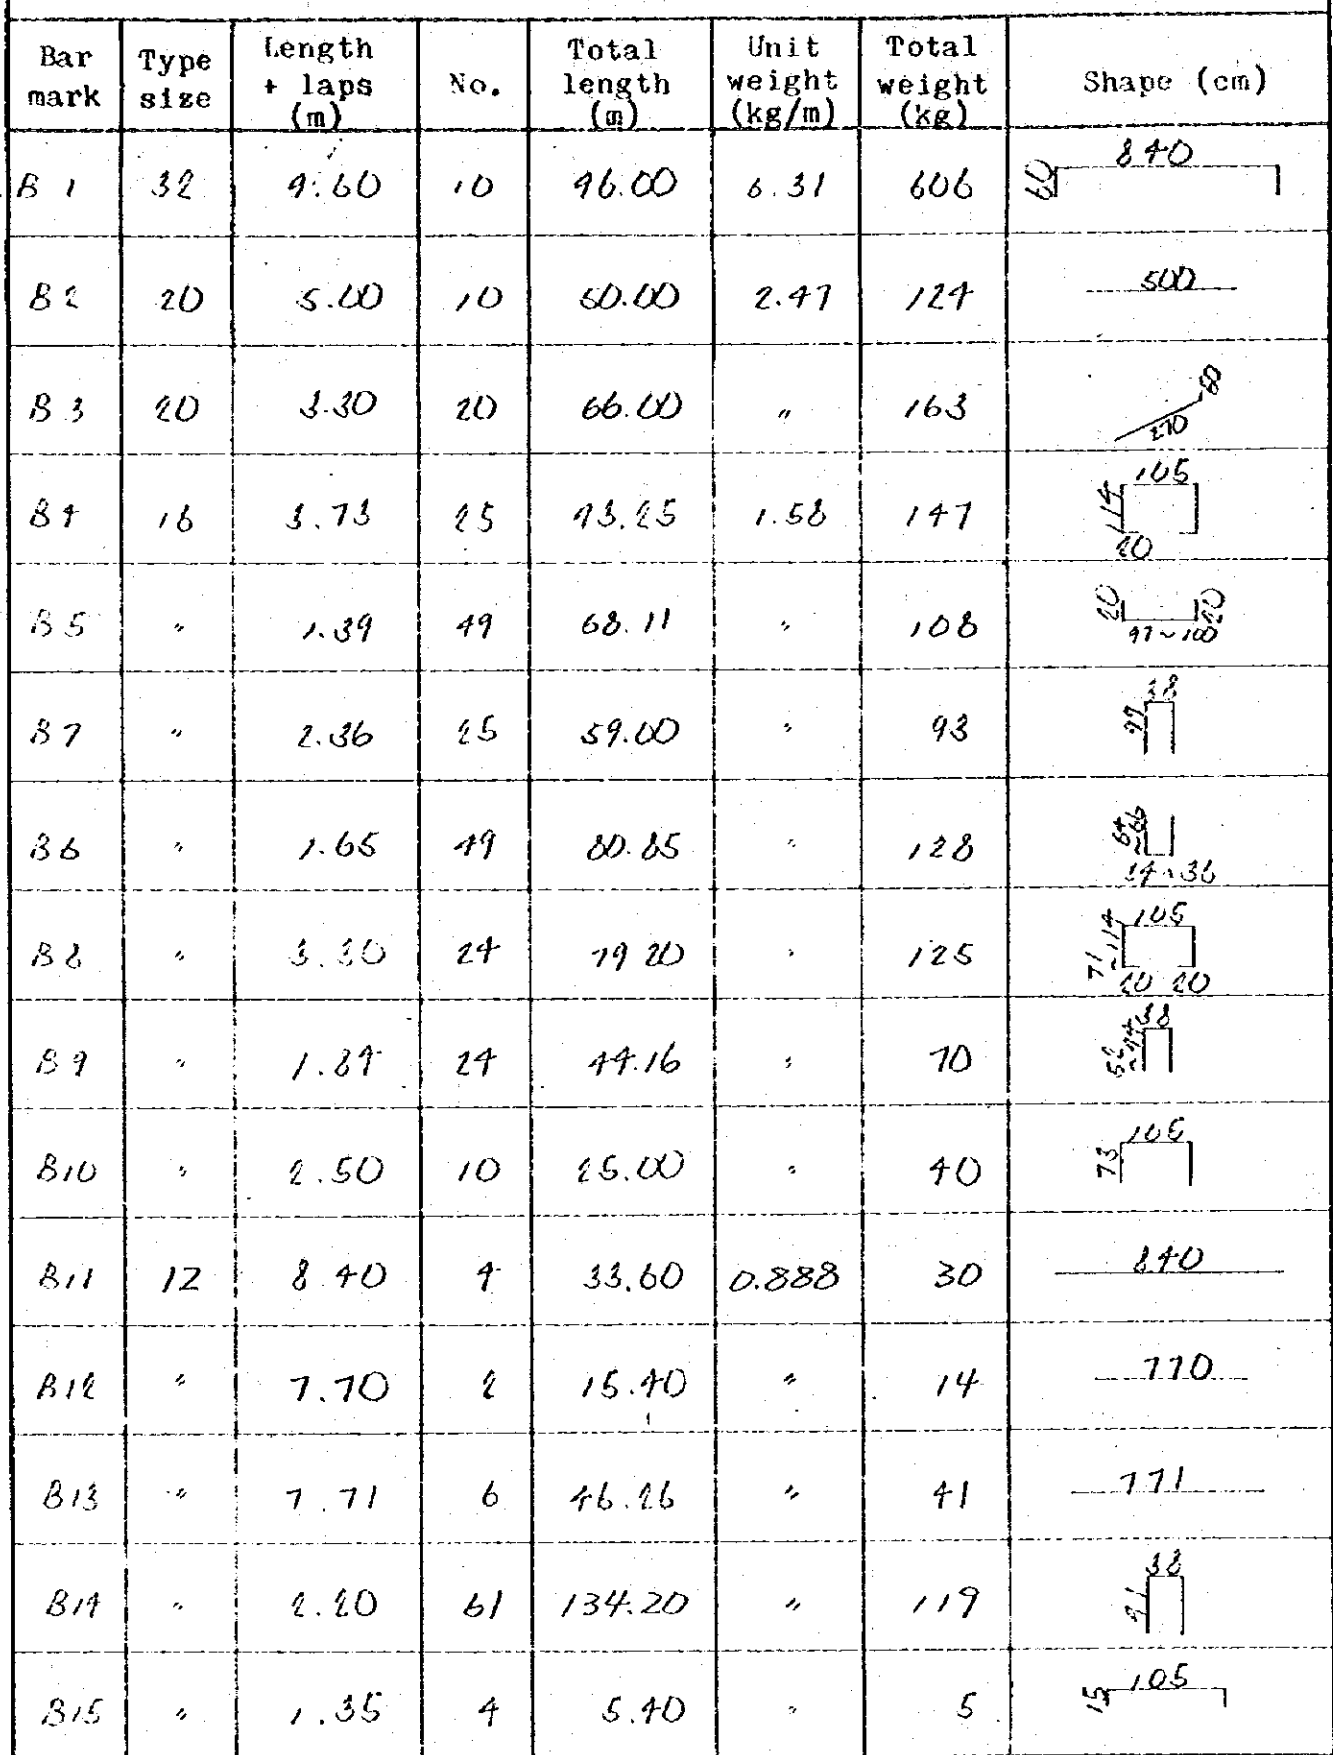 Bar mark Type size Length + laps (m) No. Total length (m) Unit weight (kg/m) Total weight (kg) Shape (cm)
B 1 32 9.60 10 96.00 6.31 606 60 840
B 2 20 5.00 10 50.00 2.47 124 500
B 3 20 3.30 20 66.00 " 163 270 60
B 4 16 3.73 25 93.25 1.58 147 114 105 20
B 5 " 1.39 49 68.11 " 108 20 97~100 20
B 7 " 2.36 25 59.00 " 93 99 38
B 6 " 1.65 49 80.85 " 128 64~66 34~36
B 8 " 3.30 24 79.20 " 125 71~114 105 20 20
B 9 " 1.84 24 44.16 " 70 52~94 38
B10 " 2.50 10 25.00 " 40 73 105
B11 12 8.40 4 33.60 0.888 30 840
B12 " 7.70 2 15.40 " 14 770
B13 " 7.71 6 46.26 " 41 771
B14 " 2.20 61 134.20 " 119 91 38
B15 " 1.35 4 5.40 " 5 15 105